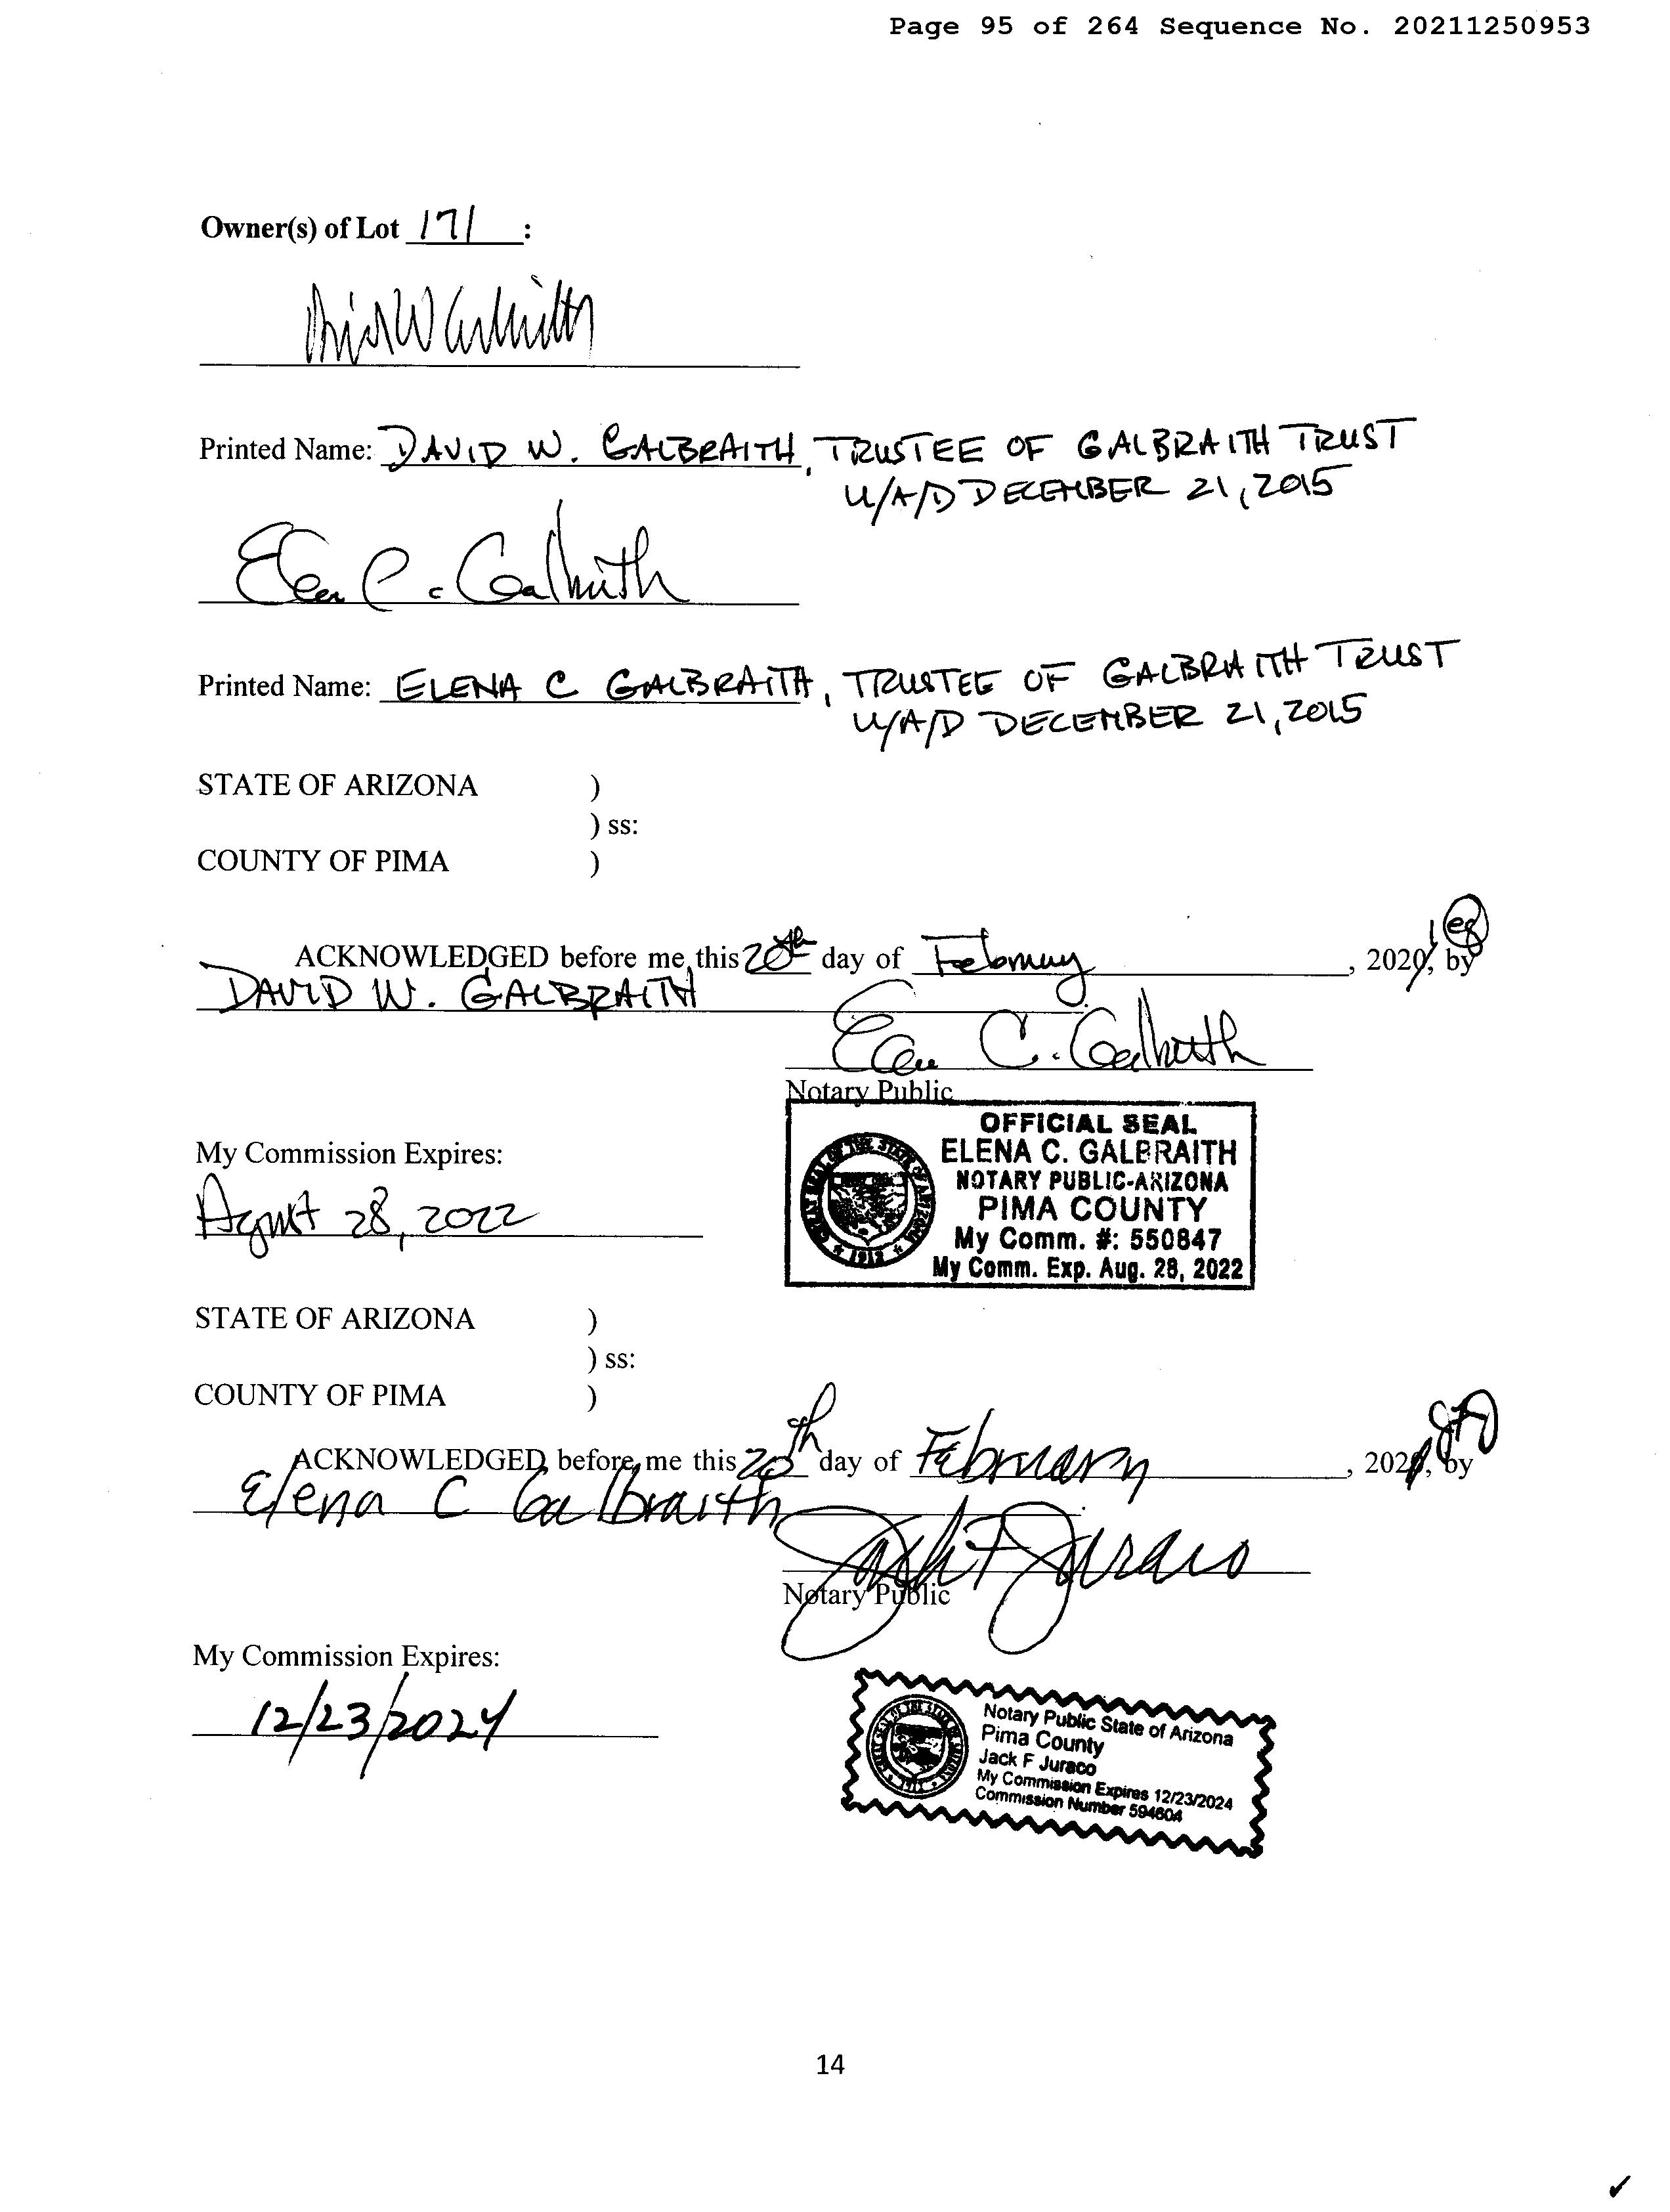 Page 95 of 264 Sequence No. 20211250953
Owner(s) of Lot 171 :
Printed Name: DAVID W. GALBRAITH, TRUSTEE OF GALBRAITH TRUST
U/A/D DECEMBER 21, 2015
Elena C. Galbraith
Printed Name: ELENA C GALBRAITH, TRUSTEE OF GALBRAITH TRUST
U/A/D DECEMBER 21, 2015
STATE OF ARIZONA )
) ss:
COUNTY OF PIMA )
ACKNOWLEDGED before me this 20th day of February, 2020, by
DAVID W. GALBRAITH
Elena C. Galbraith
Notary Public
OFFICIAL SEAL
ELENA C. GALBRAITH
NOTARY PUBLIC-ARIZONA
PIMA COUNTY
My Comm. #: 550847
My Comm. Exp. Aug. 28, 2022
My Commission Expires:
August 28, 2022
STATE OF ARIZONA )
) ss:
COUNTY OF PIMA )
ACKNOWLEDGED before me this 20th day of February, 202, by
Elena C Galbraith
Jack F Juraco
Notary Public
My Commission Expires:
12/23/2024
Notary Public State of Arizona
Pima County
Jack F Juraco
My Commission Expires 12/23/2024
Commission Number 594604
14